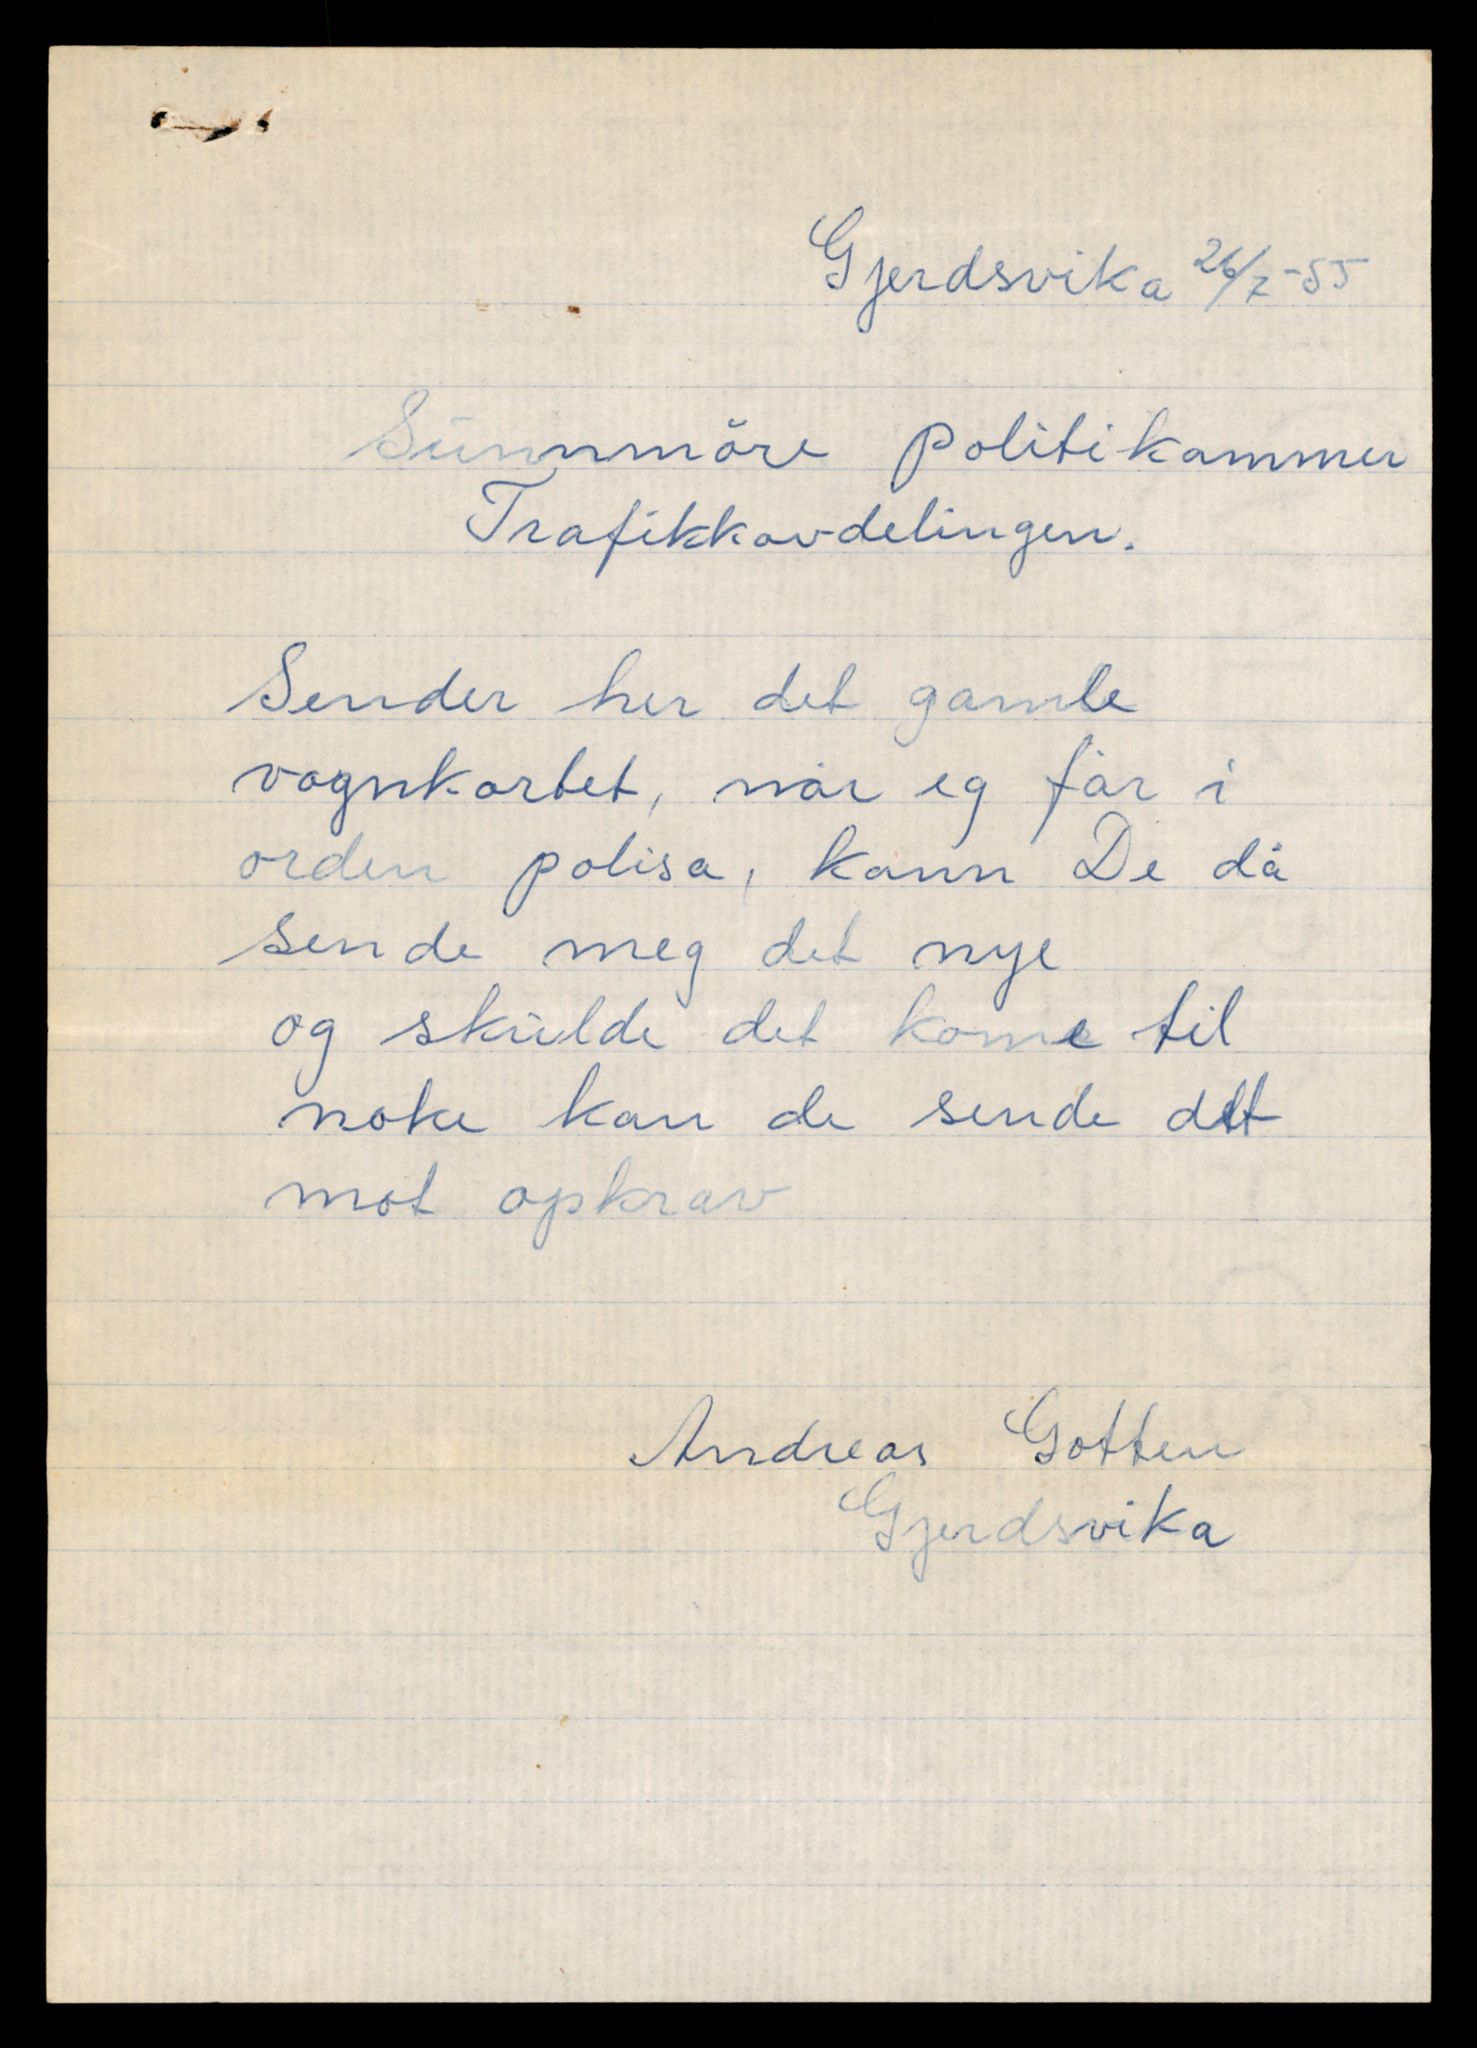 Gjerdsvika 26/7-55
Sunnmöre politikammer
Trafikkavdelingen.
Sender her det gamle
vognkortet, når eg får i
orden polisa, kann De då
sende meg det nye
og skulde det kome til
noke kan de sende det
mot opkrav
Andreas Gotten
Gjerdsvika